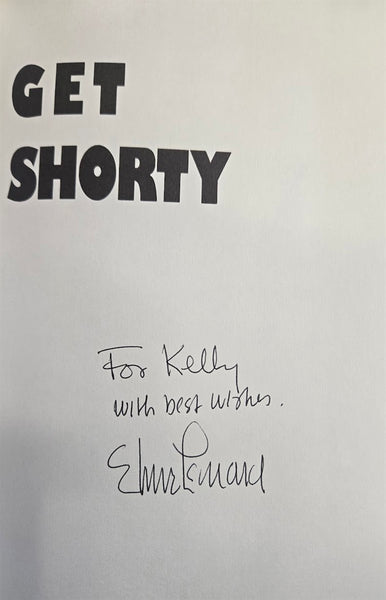 GET
SHORTY
For Kelly
with best wishes.
Elmore Leonard